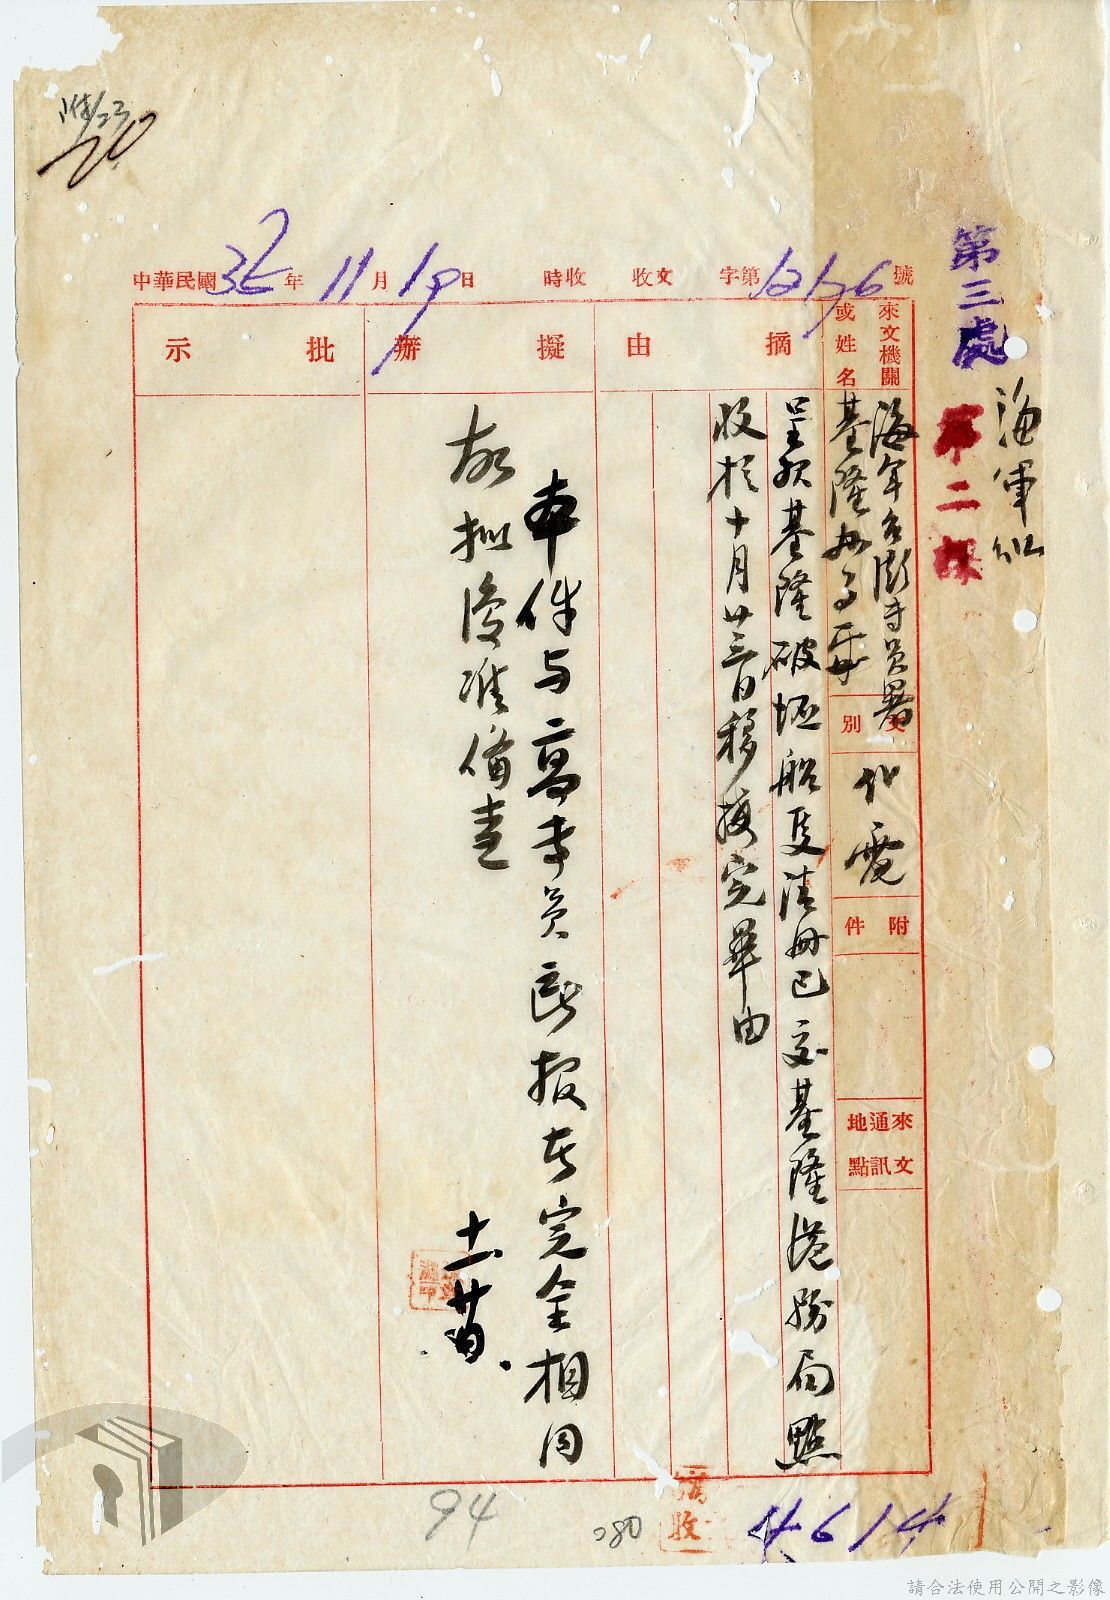 第三處
海軍組
第二課
中華民國35年11月19日 時收 收文 字第12176號
來文機關
或姓名
海軍台澎專員署
基隆辦事處
文別
代電
附件
來文
通訊
地點
摘由
呈報基隆破壞船隻清冊已交基隆港務局點
收於十月廿三日移接完畢由
擬辦
本件与高專員 報者完全相同
故擬復准備查
十一 廿
批示
摘收
4614
94
080
20
請合法使用公開之影像